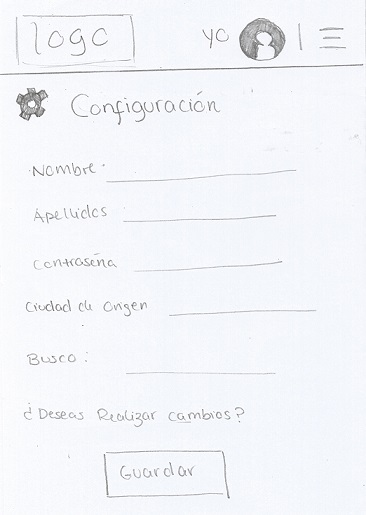 logo
yo
Configuración
Nombre:
Apellidos
Contraseña
Ciudad de Origen
Busco:
¿Deseas Realizar cambios?
Guardar